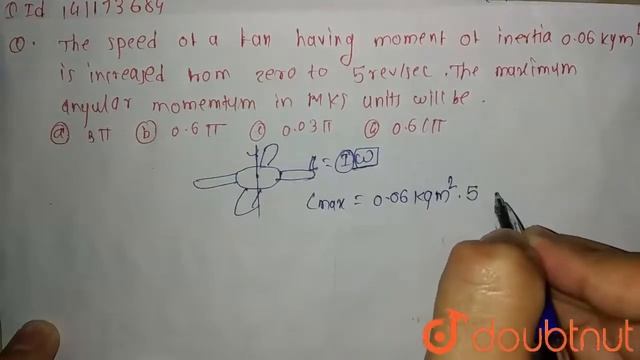 Q Id 141173684
Q. The speed of a fan having moment of inertia 0.06 kgm²
is increased from zero to 5 rev/sec. The maximum
angular momentum in MKS units will be.
(a) 3π (b) 0.6π (c) 0.03π (d) 0.6
L = I ω
Lmax = 0.06 kgm². 5
doubtnut